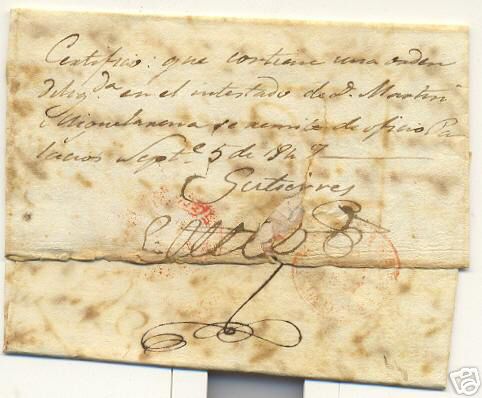 Certifico: que contiene una orden
delig.da en el intestado de D. Martin
se remite de oficio Pa-
lacios Sept.e 5 de 1847
Gutierres